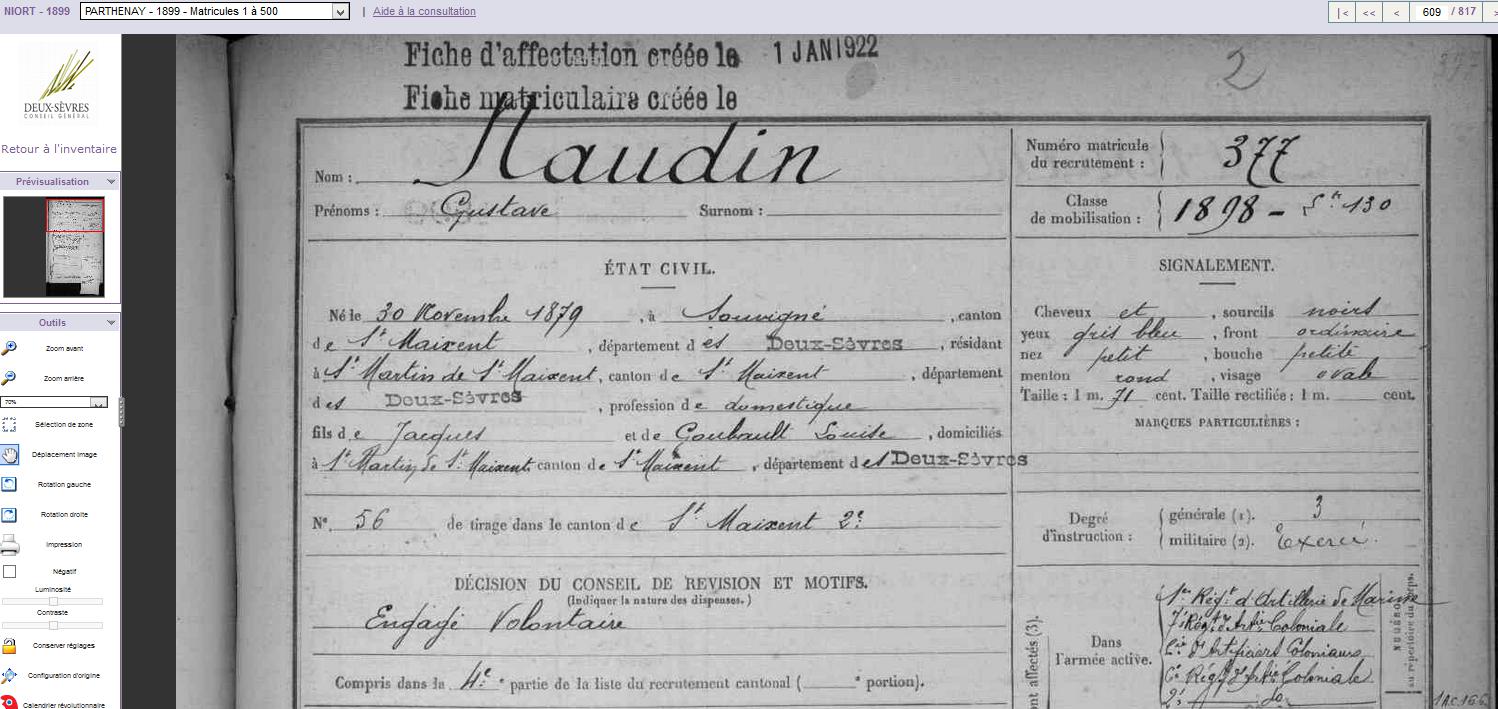 NIORT - 1899
PARTHENAY - 1899 - Matricules 1 à 500
| Aide à la consultation
|< << < 609 / 817 >
DEUX-SÈVRES
CONSEIL GÉNÉRAL
Retour à l'inventaire
Prévisualisation
Outils
Zoom avant
Zoom arrière
70%
Sélection de zone
Déplacement image
Rotation gauche
Rotation droite
Impression
Négatif
Luminosité
Contraste
Conserver réglages
Configuration d'origine
Calendrier révolutionnaire
Fiche d'affectation créée le 1 JAN 1922
Fiche matriculaire créée le
2
377
Nom : Naudin
Prénoms : Gustave Surnom :
Numéro matricule
du recrutement : 377
Classe
de mobilisation : 1898 - 130
ÉTAT CIVIL.
Né le 30 Novembre 1879, à Souvigné, canton
de St Maixent, département des Deux-Sèvres, résidant
à St Martin de St Maixent, canton de St Maixent, département
des Deux-Sèvres, profession de domestique
fils de Jacques et de Goubault Louise, domiciliés
à St Martin de St Maixent canton de St Maixent, département des Deux-Sèvres
N° 56 de tirage dans le canton de St Maixent 2e
DÉCISION DU CONSEIL DE REVISION ET MOTIFS.
(Indiquer la nature des dispenses.)
Engagé Volontaire
Compris dans la 4e e partie de la liste du recrutement cantonal ( e portion).
SIGNALEMENT.
Cheveux et, sourcils noirs
yeux gris bleu, front ordinaire
nez petit, bouche petite
menton rond, visage ovale
Taille : 1 m. 71 cent. Taille rectifiée : 1 m. cent.
MARQUES PARTICULIÈRES :
Degré
d'instruction :
générale (1). 3
militaire (2). Exercé.
Dans
l'armée active.
1er Régt d'Artillerie de Marine
7e Régt d'Artie Coloniale
Cie d'Artificiers Coloniaux
6e Régt d'Artie Coloniale
2e do
NUMÉRO
au répertoire du corps.
nt affectés (3).